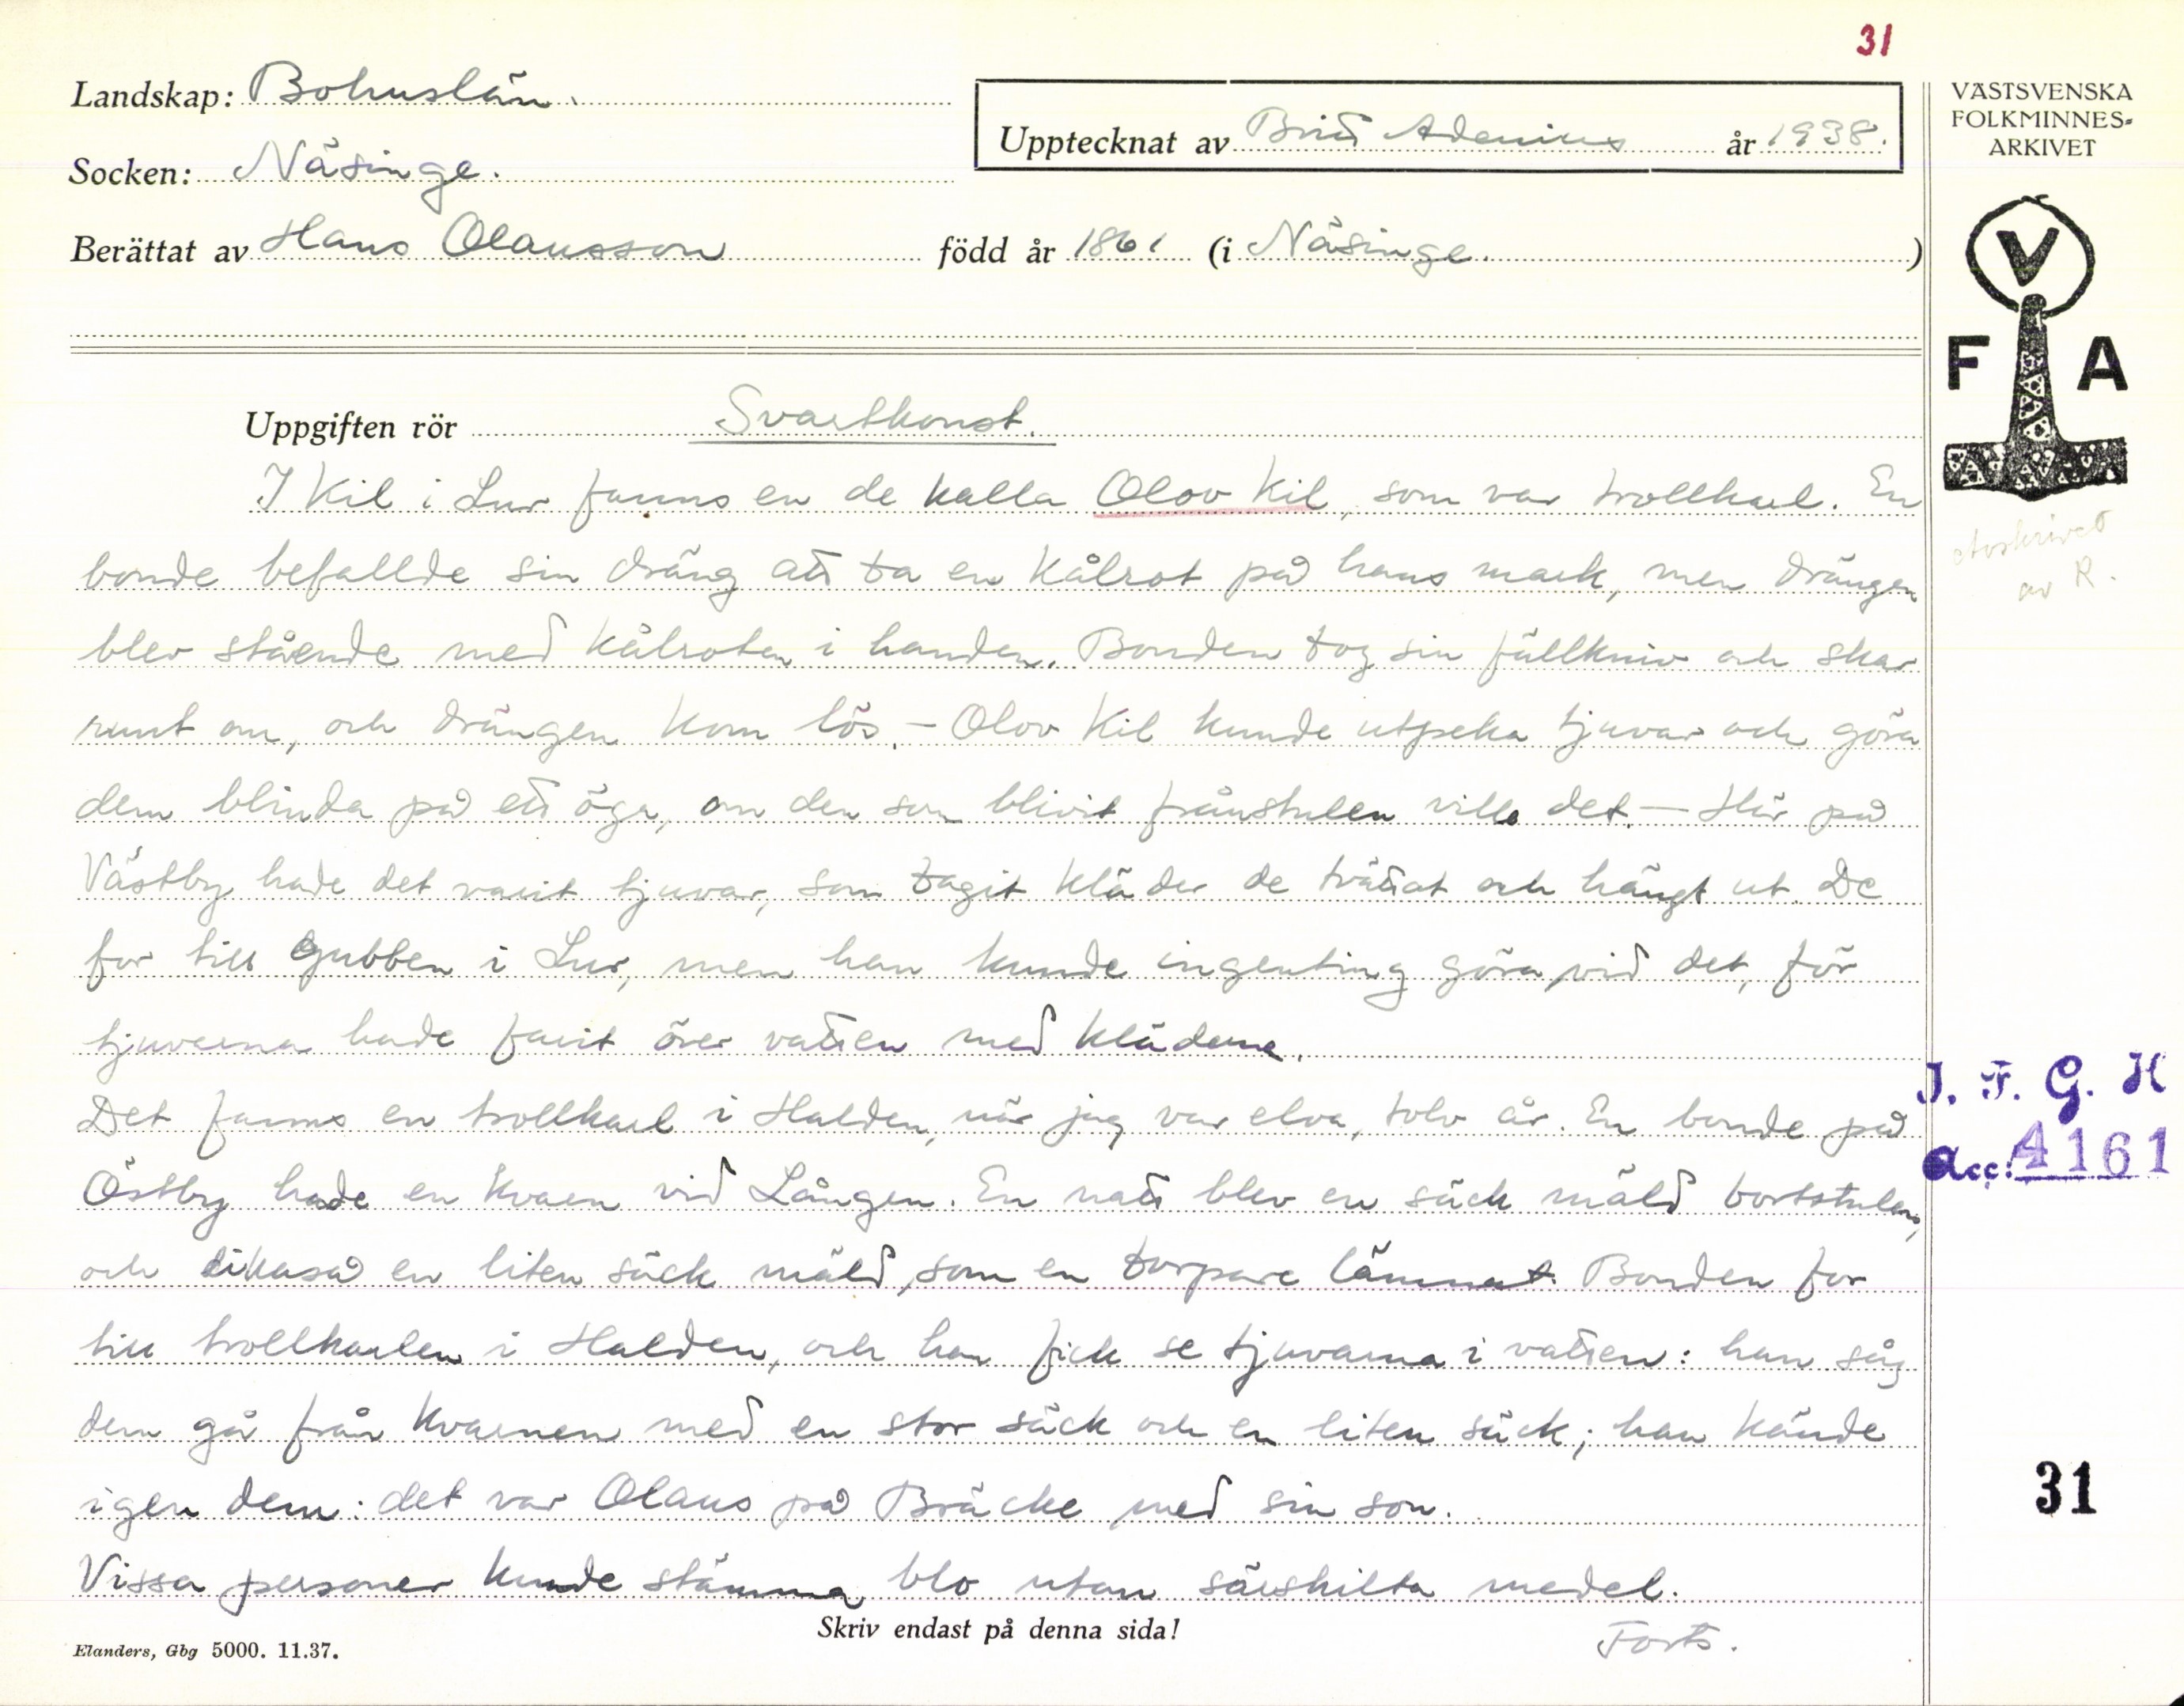 31
Landskap: Bohuslän.
Upptecknat av Britt Adenius år 1938.
Socken: Näsinge.
Berättat av Hans Olausson född år 1861 (i Näsinge.)
VÄSTSVENSKA
FOLKMINNES-
ARKIVET
V
F A
Uppgiften rör Svartkonst.
I Kil i Lur fanns en de kalla Olov Kil, som var trollkarl. En
bonde befallde sin dräng att ta en kålrot på hans mark, men drängen
blev stående med kålroten i handen. Bonden tog sin fällkniv och skar
runt om, och drängen kom lös. – Olov Kil kunde utpeka tjuvar och göra
dem blinda på ett öga, om den som blivit frånstulen ville det. – Här på
Västby hade det varit tjuvar, som tagit kläder de tvättat och hängt ut. De
for till gubben i Lur, men han kunde ingenting göra vid det, för
tjuvarna hade farit över vatten med kläderna.
Det fanns en trollkarl i Halden, när jag var elva, tolv år. En bonde på
Östby hade en kvarn vid Lången. En natt blev en säck mäld bortstulen,
och likaså en liten säck mäld, som en torpare lämnat. Bonden for
till trollkarlen i Halden, och han fick se tjuvarna i vatten: han såg
dem gå från kvarnen med en stor säck och en liten säck; han kände
igen dem: det var Olaus på Bräcke med sin son.
Vissa personer kunde stämma blo utan särskilta medel.
Forts.
Skriv endast på denna sida!
Elanders, Gbg 5000. 11.37.
Avskrivet
av R.
I. F. G. H
Acc: 4161
31